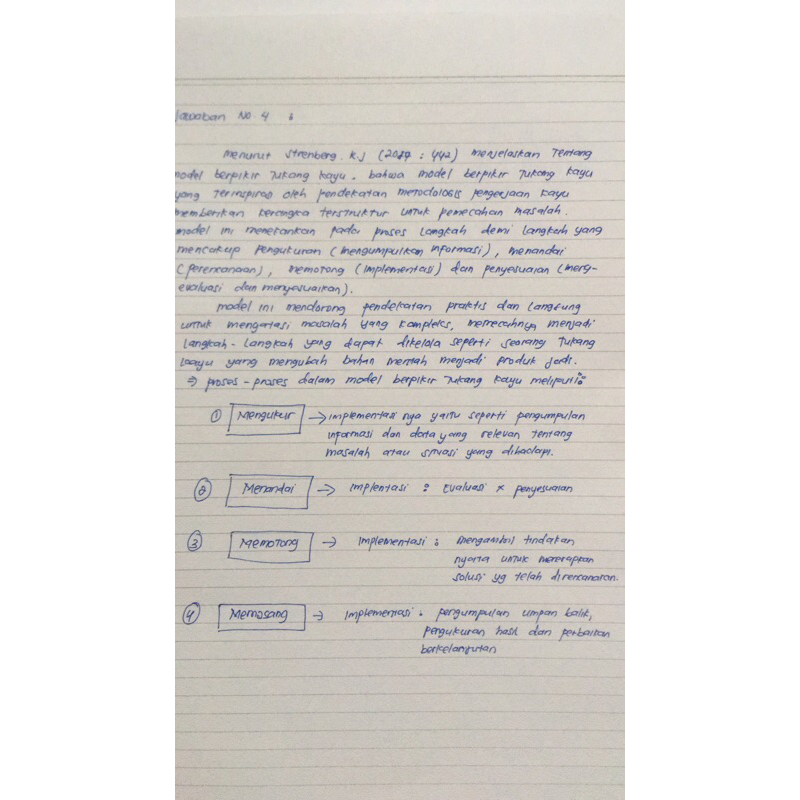 Jawaban No 4 :
Menurut Strenberg. R.J (2017 : 442) menjelaskan Tentang
model berpikir Tukang kayu. bahwa model berpikir Tukang kayu
yang Terinspirasi oleh pendekatan metodologis pengerjaan kayu
memberikan kerangka terstruktur untuk pemecahan masalah.
model ini menekankan pada proses langkah demi langkah yang
mencakup Pengukuran (mengumpulkan informasi), menandai
(perencanaan), memotong (implementasi) dan penyesuaian (meng-
evaluasi dan menyesuaikan).
model ini mendorong pendekatan praktis dan langsung
untuk mengatasi masalah yang kompleks, memecahnya menjadi
langkah-langkah yang dapat dikelola seperti seorang Tukang
kayu yang mengubah bahan mentah menjadi produk jadi.
⇒ proses-proses dalam model berpikir Tukang kayu meliputi:
① Mengukur → implementasi nya yaitu seperti pengumpulan
informasi dan data yang relevan tentang
masalah atau situasi yang dihadapi.
② Menandai → Implentasi : Evaluasi x penyesuaian
③ Memotong → Implementasi : mengambil tindakan
nyata untuk menerapkan
solusi yg telah direncanakan.
④ Memasang → Implementasi : pengumpulan umpan balik,
pengukuran hasil dan perbaikan
berkelanjutan